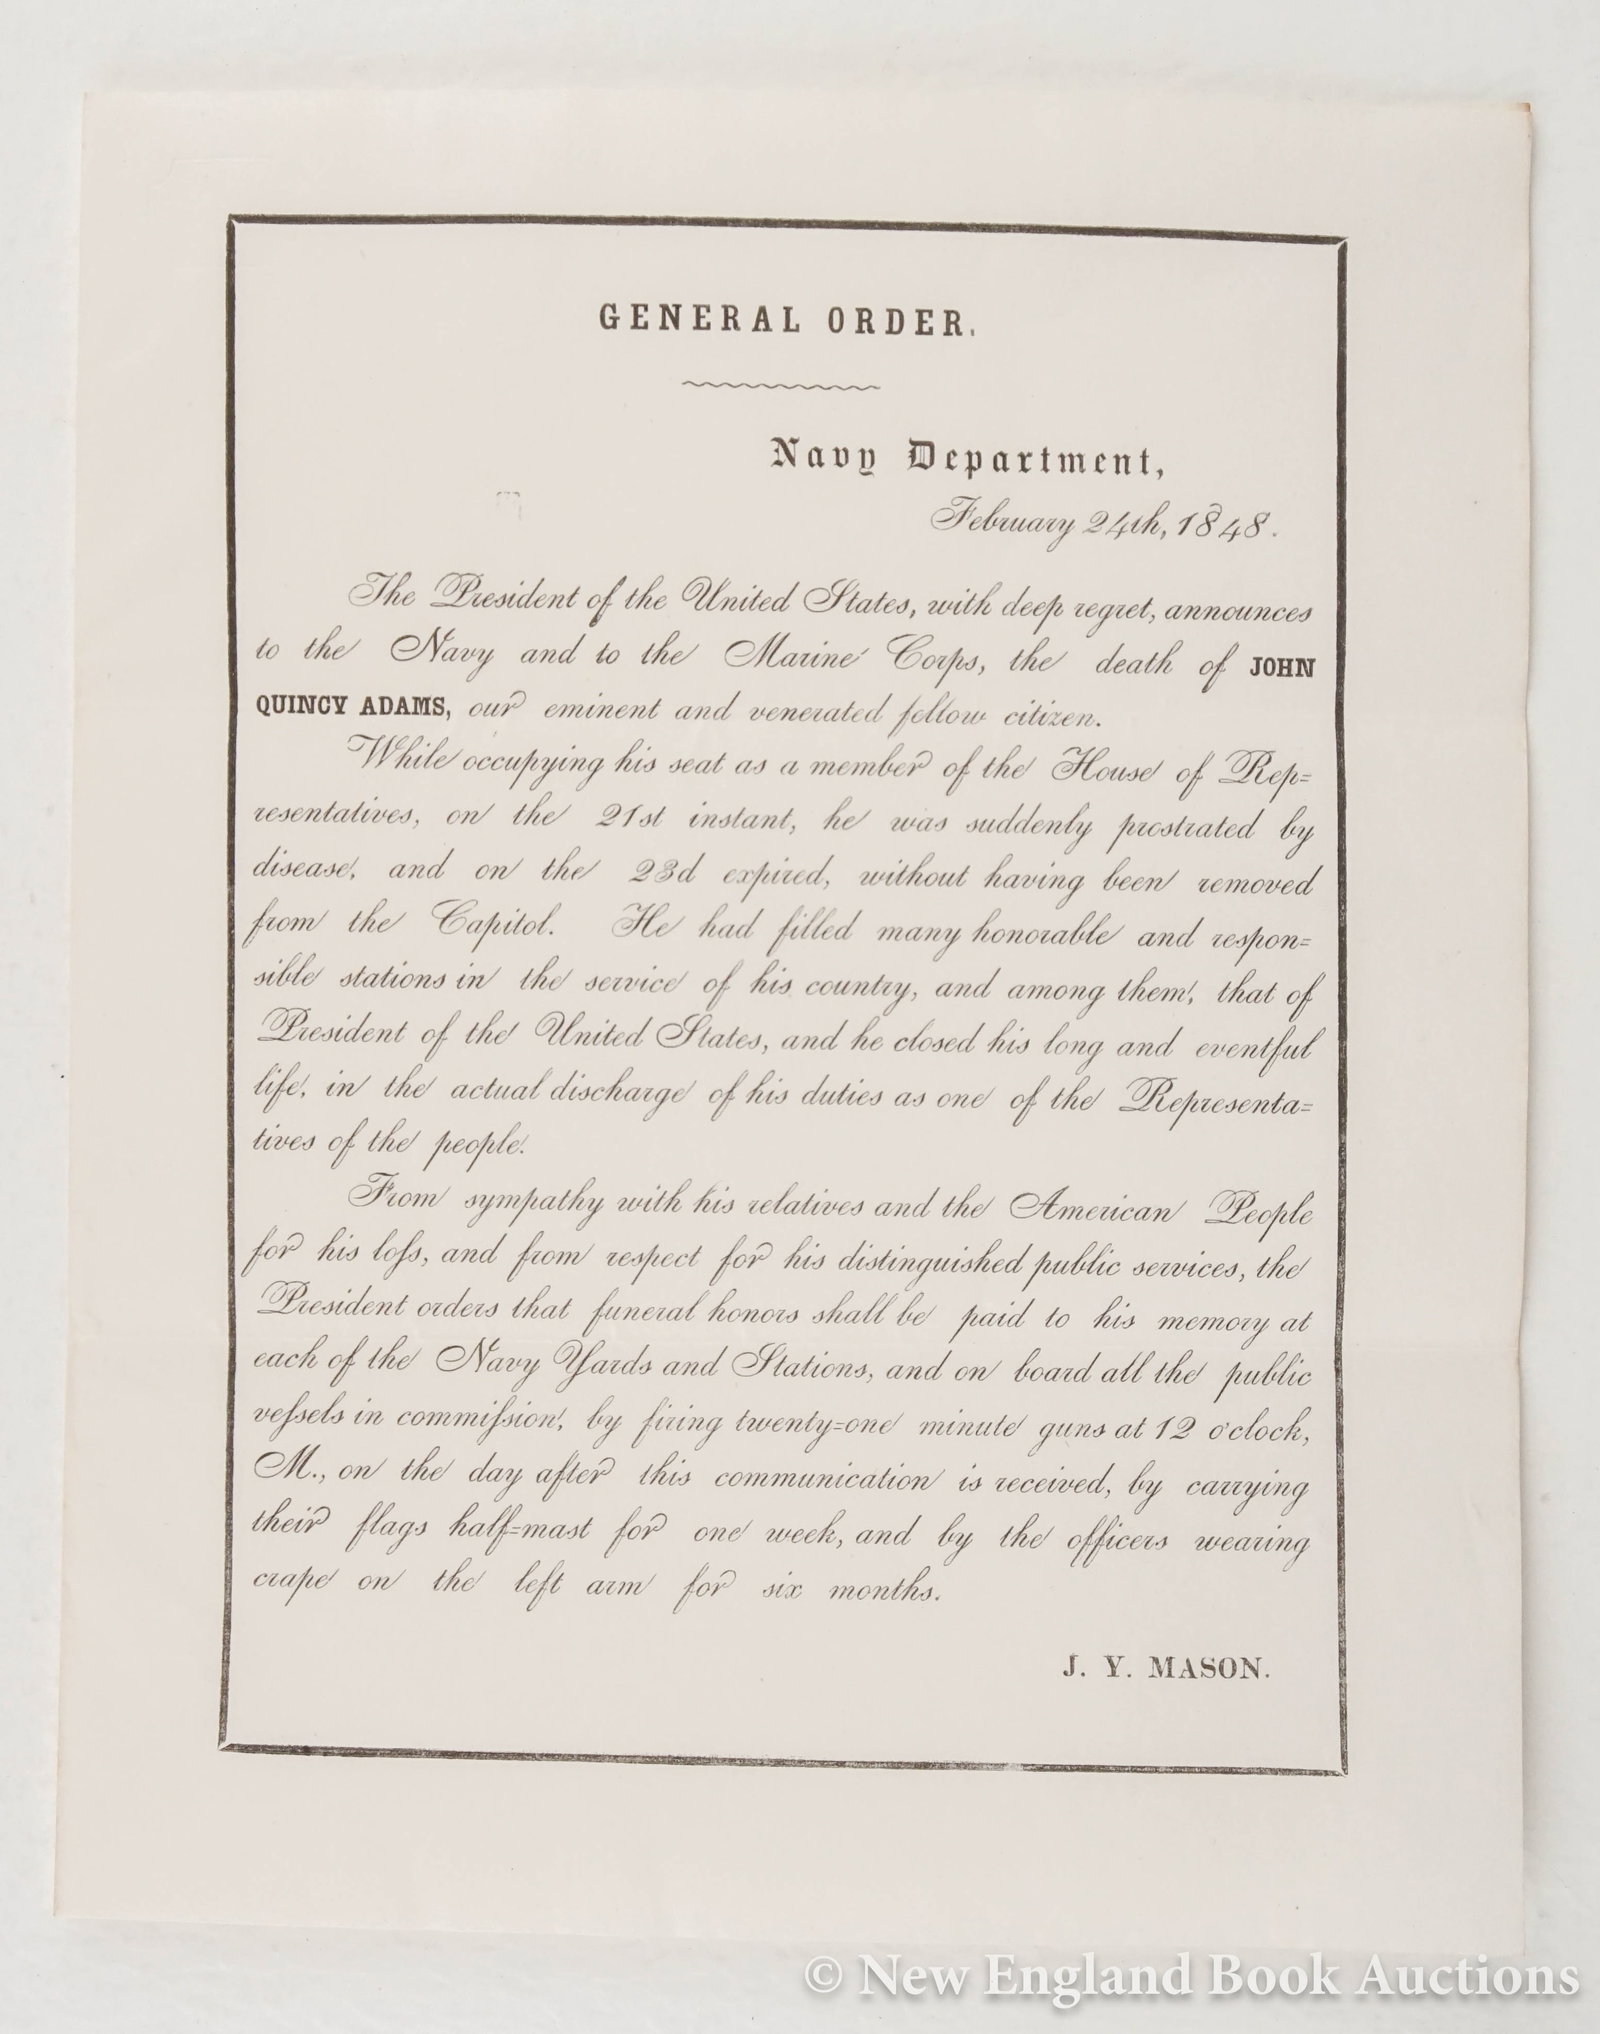 GENERAL ORDER.
Navy Department,
February 24th, 1848.
The President of the United States, with deep regret, announces
to the Navy and to the Marine Corps, the death of JOHN
QUINCY ADAMS, our eminent and venerated fellow citizen.
While occupying his seat as a member of the House of Rep=
resentatives, on the 21st instant, he was suddenly prostrated by
disease, and on the 23d expired, without having been removed
from the Capitol. He had filled many honorable and respon=
sible stations in the service of his country, and among them, that of
President of the United States, and he closed his long and eventful
life, in the actual discharge of his duties as one of the Representa=
tives of the people.
From sympathy with his relatives and the American People
for his loſs, and from respect for his distinguished public services, the
President orders that funeral honors shall be paid to his memory at
each of the Navy Yards and Stations, and on board all the public
veſsels in commiſsion, by firing twenty=one minute guns at 12 o'clock,
M., on the day after this communication is received, by carrying
their flags half=mast for one week, and by the officers wearing
crape on the left arm for six months.
J. Y. MASON.
© New England Book Auctions